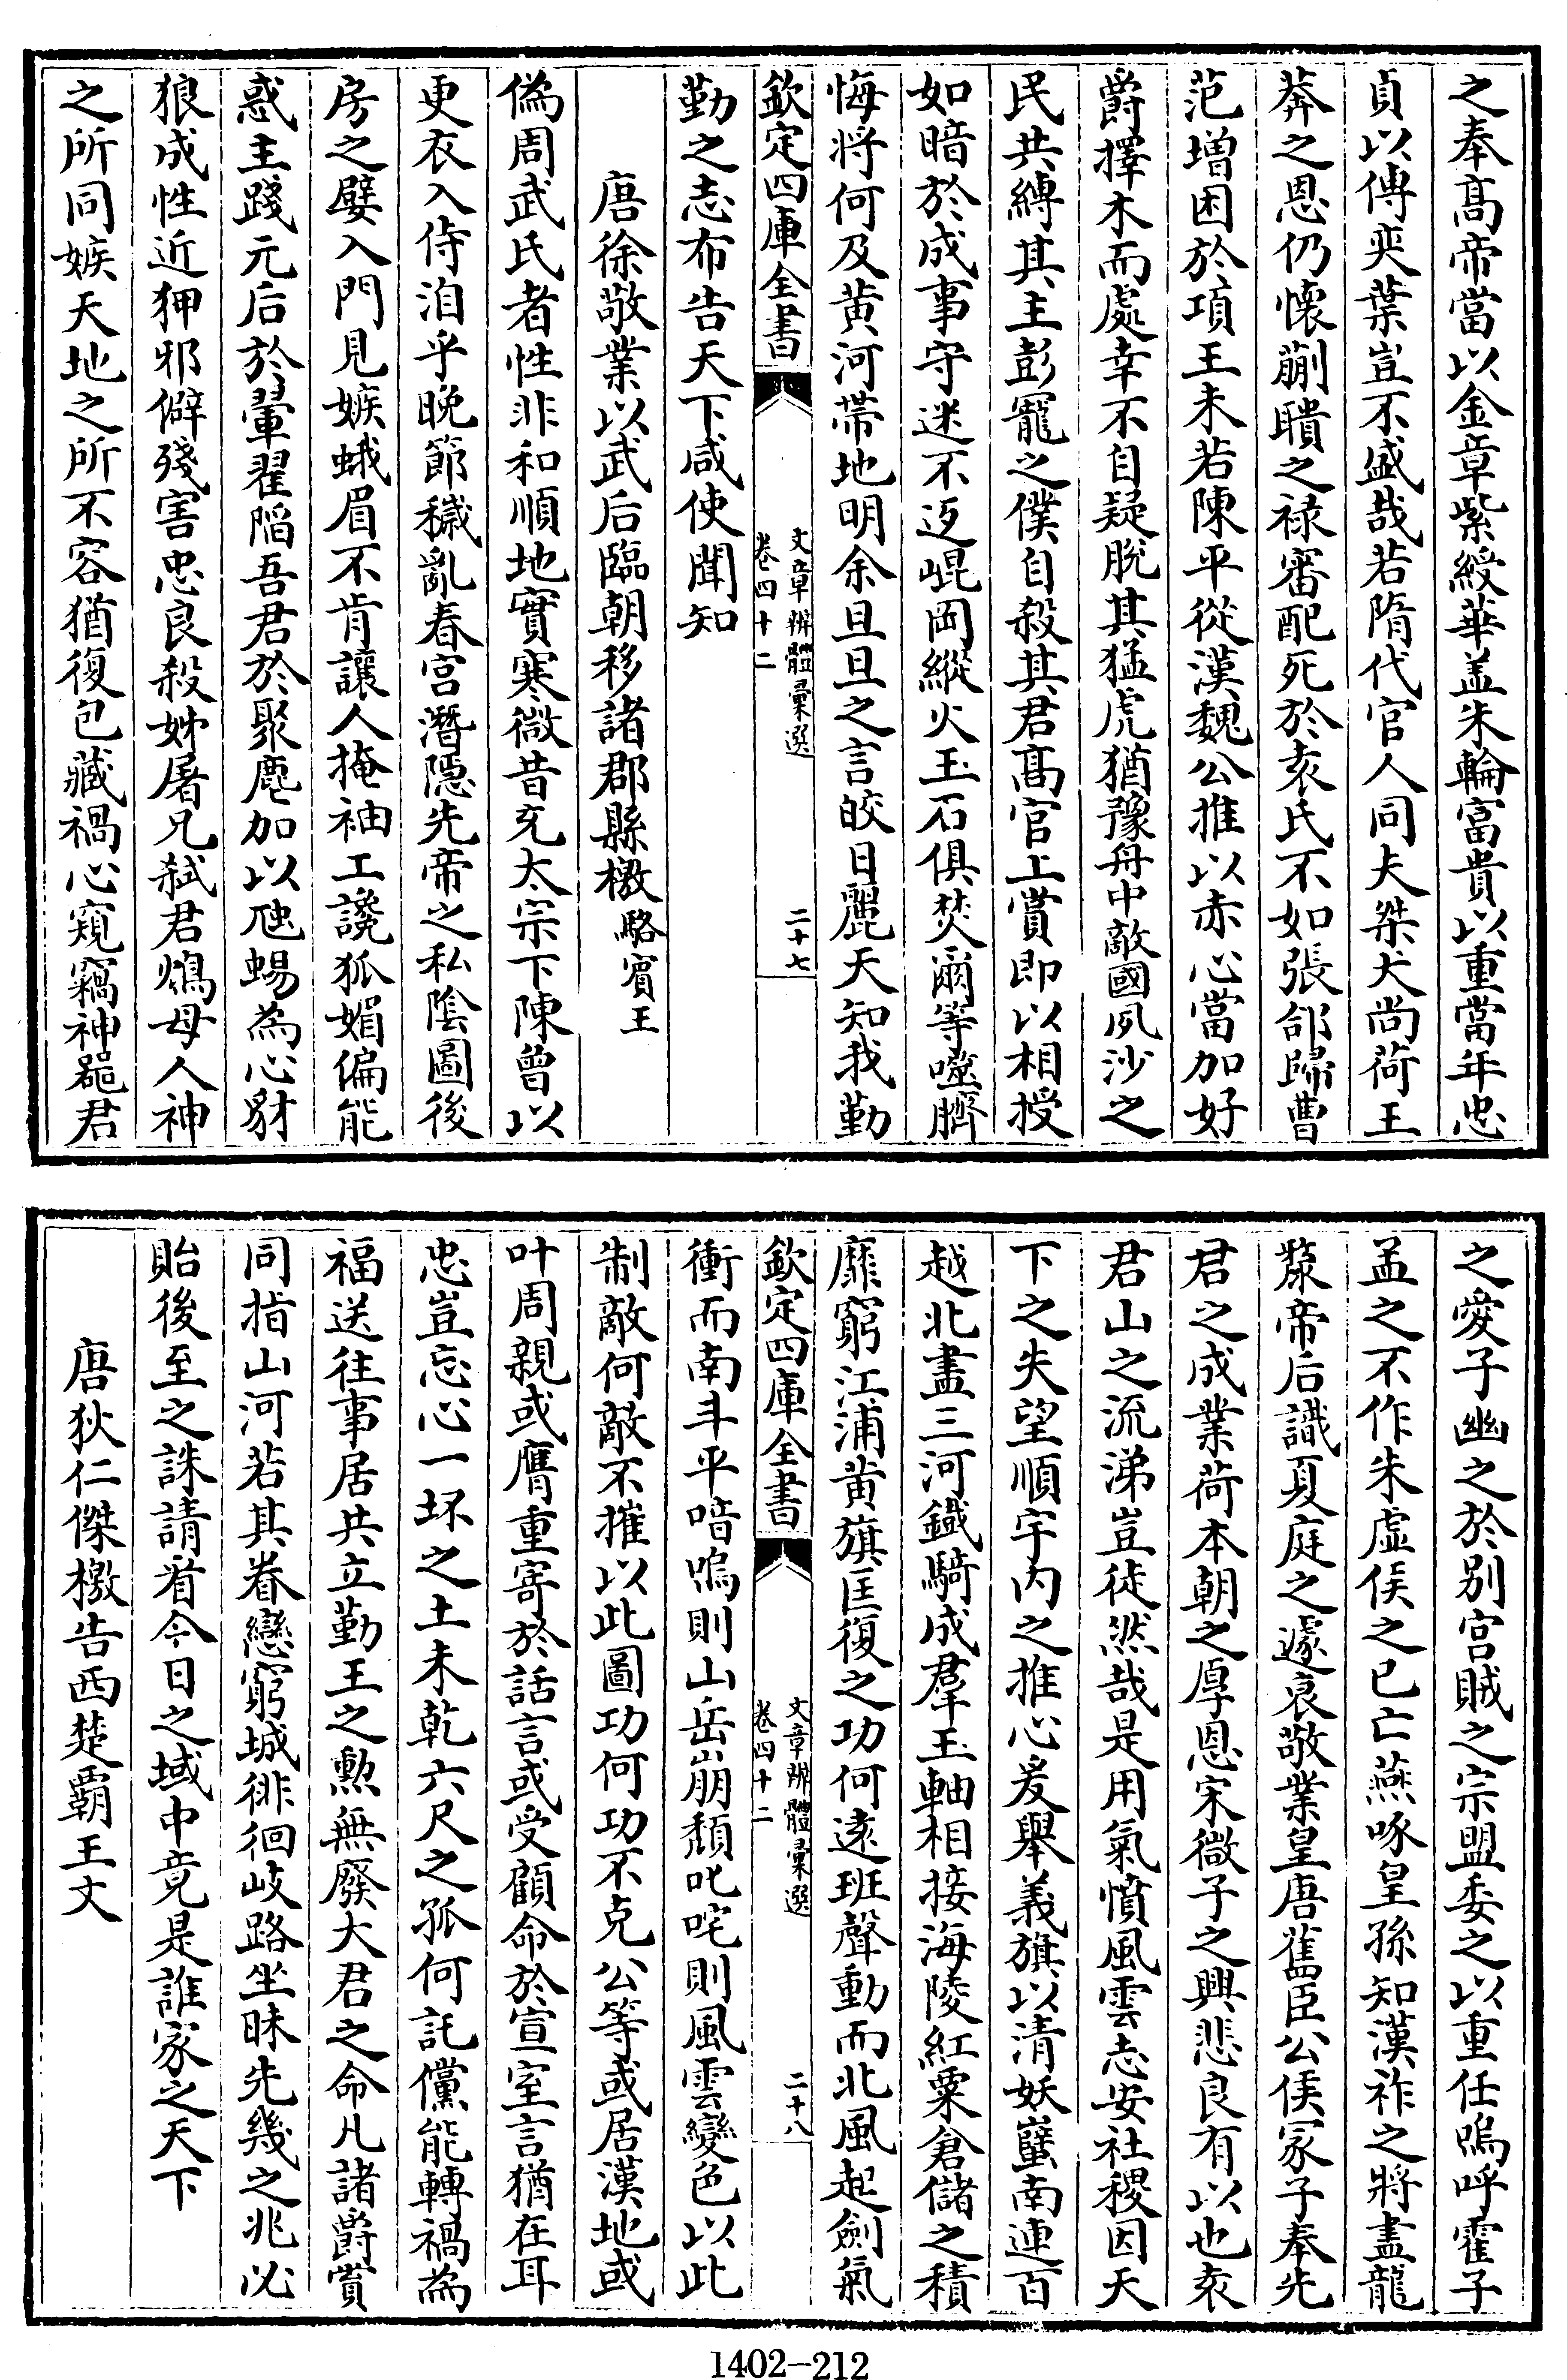 之奉髙帝當以金章紫綬華盖朱輪富貴以重當年忠
貞以傳奕葉豈不盛哉若隋代官人同夫桀犬尚荷王
莽之恩仍懷蒯聵之禄審配死於袁氏不如張郃歸曹
范增困於項王未若陳平從漢魏公推以赤心當加好
爵擇木而處幸不自疑脱其猛虎猶豫舟中敵國夙沙之
民共縛其主彭寵之僕自殺其君髙官上賞即以相授
如暗於成事守迷不返崐岡縱火玉石俱焚爾等噬臍
悔將何及黄河帶地明余旦旦之言皎日麗天知我勤
欽定四庫全書
文章辨體彚選
卷四十二
二十七
勤之志布告天下咸使聞知
唐徐敬業以武后臨朝移諸郡縣檄 駱賓王
偽周武氏者性非和順地實寒微昔充太宗下陳曾以
更衣入侍洎乎晚節穢亂春宫潛隱先帝之私陰圖後
房之嬖入門見嫉蛾眉不肯讓人掩袖工讒狐媚偏能
惑主踐元后於翬翟陷吾君於聚麀加以虺蜴為心豺
狼成性近狎邪僻殘害忠良殺姊屠兄弑君鴆母人神
之所同嫉天地之所不容猶復包藏禍心窺竊神器君
之愛子幽之於别宫賊之宗盟委之以重任嗚呼霍子
孟之不作朱虚侯之已亡燕啄皇孫知漢祚之將盡龍
漦帝后識夏庭之遽衰敬業皇唐舊臣公侯冢子奉先
君之成業荷本朝之厚恩宋微子之興悲良有以也袁
君山之流涕豈徒然哉是用氣憤風雲志安社稷因天
下之失望順宇内之推心爰舉義旗以清妖孽南連百
越北盡三河鐵騎成羣玉軸相接海陵紅粟倉儲之積
靡窮江浦黄旗匡復之功何遠班聲動而北風起劍氣
欽定四庫全書
文章辨體彚選
卷四十二
二十八
衝而南斗平喑嗚則山岳崩頽叱咤則風雲變色以此
制敵何敵不摧以此圖功何功不克公等或居漢地或
叶周親或膺重寄於話言或受顧命於宣室言猶在耳
忠豈忘心一抔之土未乾六尺之孤何託儻能轉禍為
福送往事居共立勤王之勲無廢大君之命凡諸爵賞
同指山河若其眷戀窮城徘徊岐路坐昧先幾之兆必
貽後至之誅請看今日之域中竟是誰家之天下
唐狄仁傑檄告西楚霸王文
1402-212